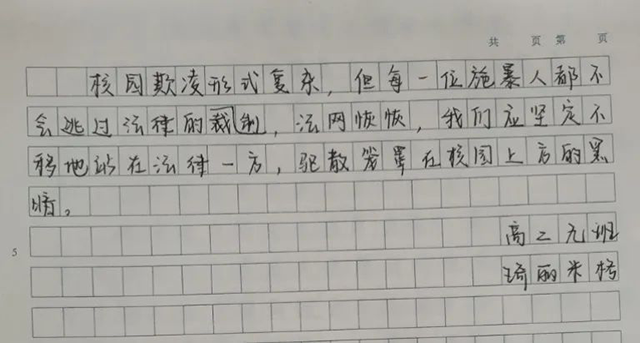 共 页 第 页
校园欺凌形式复杂，但每一位施暴人都不
会逃过法律的裁制，法网恢恢，我们应坚定不
移地站在法律一方，驱散笼罩在校园上方的黑
暗。
5
高二九班
琦丽米格